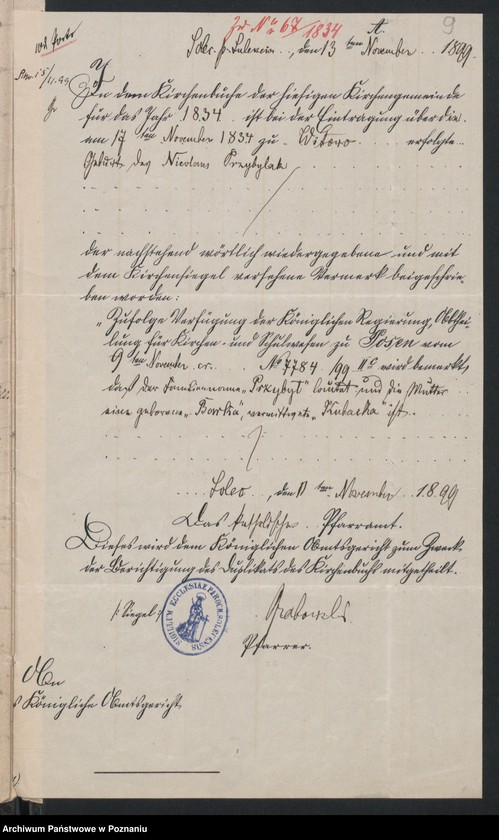 Zu No 67/1834
A.
9
Solec p. Sulencin, den 13 ten November 1899.
In dem Kirchenbuche der hiesigen Kirchengemeinde
für das Jahr 1834 ist bei der Eintragung über die
am 17 ten November 1834 zu Witowo erfolgte
Geburt des Nicolaus Przybylak
der nachstehend wörtlich wiedergegebene und mit
dem Kirchensiegel versehene Vermerk beigeschrie-
ben worden:
"Zufolge Verfügung der Königlichen Regierung, Abthei-
lung für Kirchen- und Schulwesen zu Posen vom
9 ten November cr. No 7784/99 II c wird bemerkt,
daß der Familienname "Przybyl" lautet und die Mutter
eine geborene, verwittwete "Kubacka" ist.
Solec, den 11 ten November 1899
Das katholische Pfarramt.
Dieses wird dem Königlichen Amtsgericht zum Zweck
der Berichtigung des Duplikats des Kirchenbuchs mitgetheilt.
/: Siegel :/
SIGILLUM ECCLESIAE PAROCH. SOLECENSIS
Grabowski
Pfarrer.
An
s Königliche Amtsgericht
Archiwum Państwowe w Poznaniu